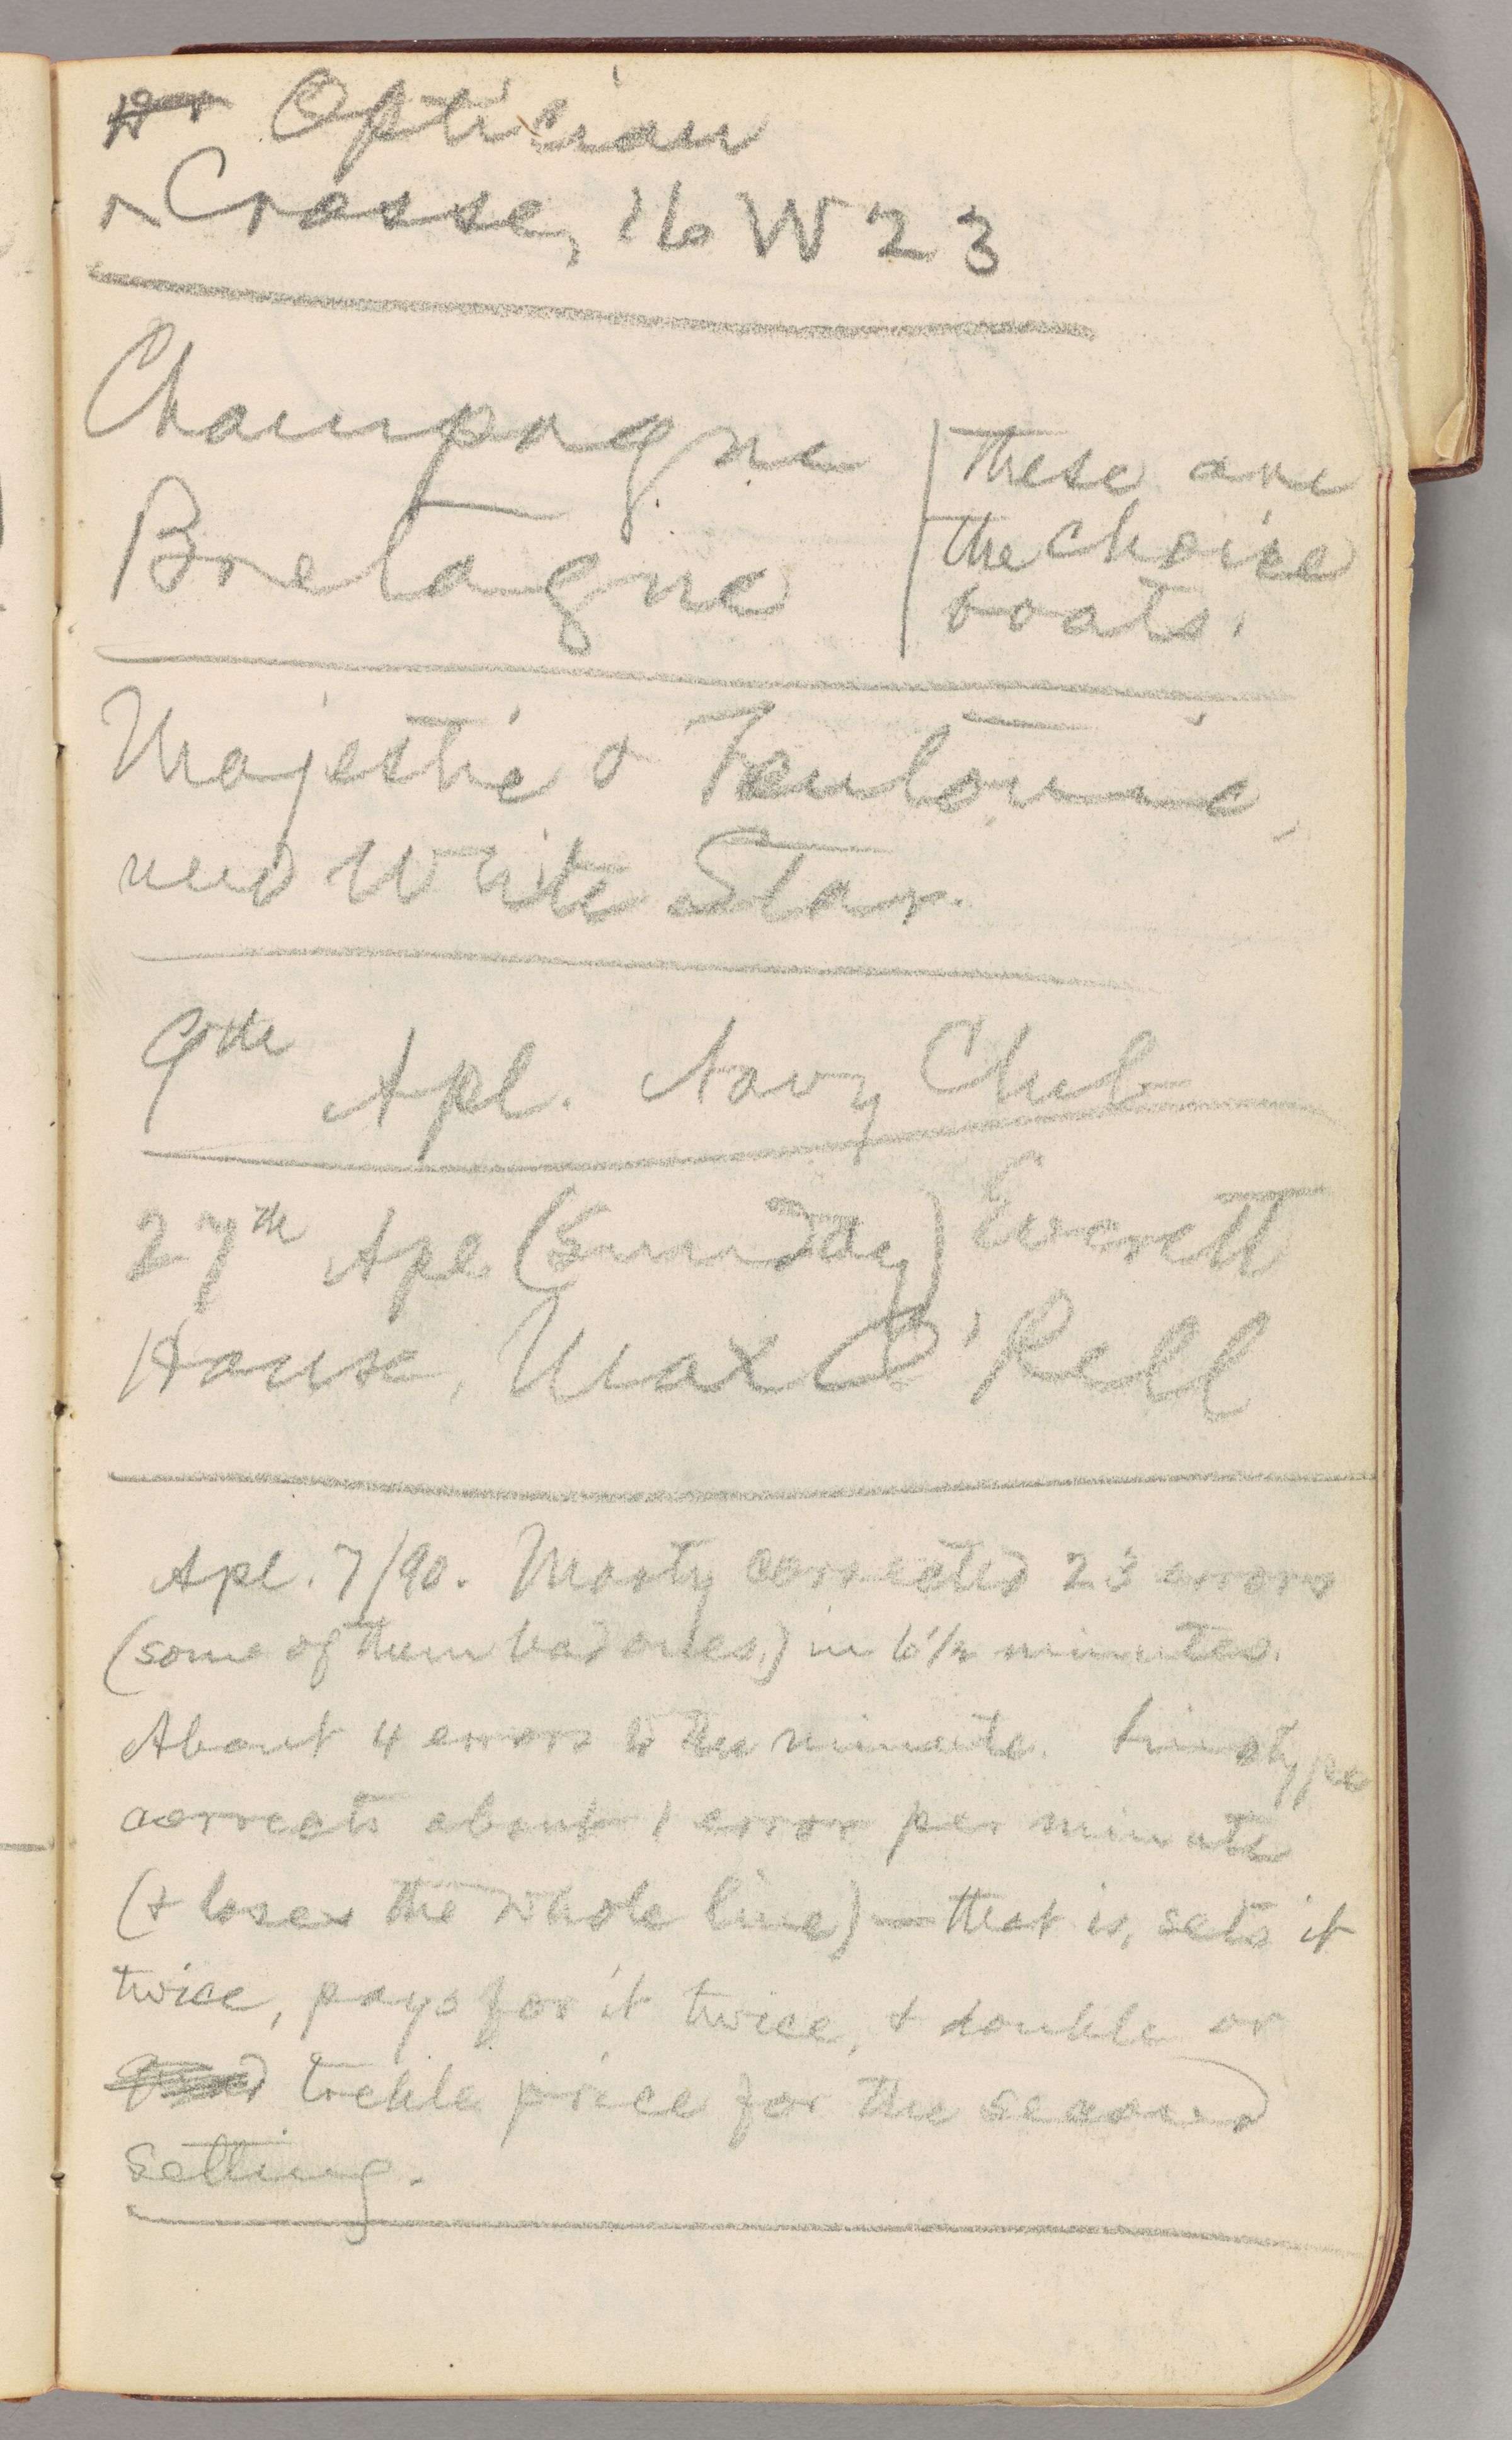 Dr Optician
Crosse, 16 W 23
Champagne
Bretagne
these are
the choice
boats.
Majestic & Teutonic,
new White Star.
9th Apl. Navy Club
27th Apl (Sunday) Everett
House, Max O'Rell
Apl. 7/90. Marty corrected 23 errors
(some of them bad ones,) in 6½ minutes.
About 4 errors to the minute. Linotype
corrects about 1 error per minute
(& loses the whole line) — that is, sets it
twice, pays for it twice, & double or
treble price for the second
setting.